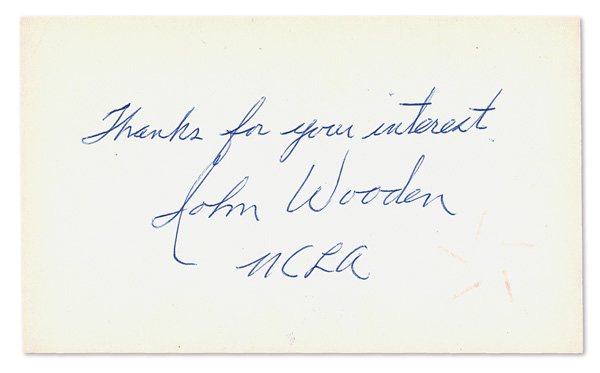 Thanks for your interest
John Wooden
UCLA